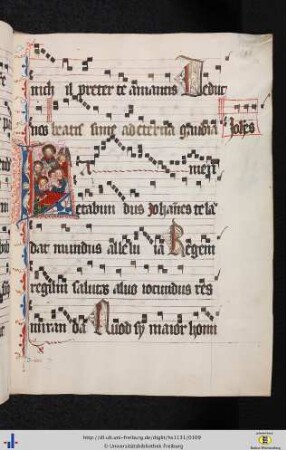 nich il preter te amantis Deduc
nos beatis sime ad eterna gaudia
Johes
A men
Letabun dus Johannes te la
dat mundus alle lu ia Regem
regum salutas aluo iocundus res
miran da Quod sy maior homi
http://dl.ub.uni-freiburg.de/diglit/hs1131/0309
© Universitätsbibliothek Freiburg